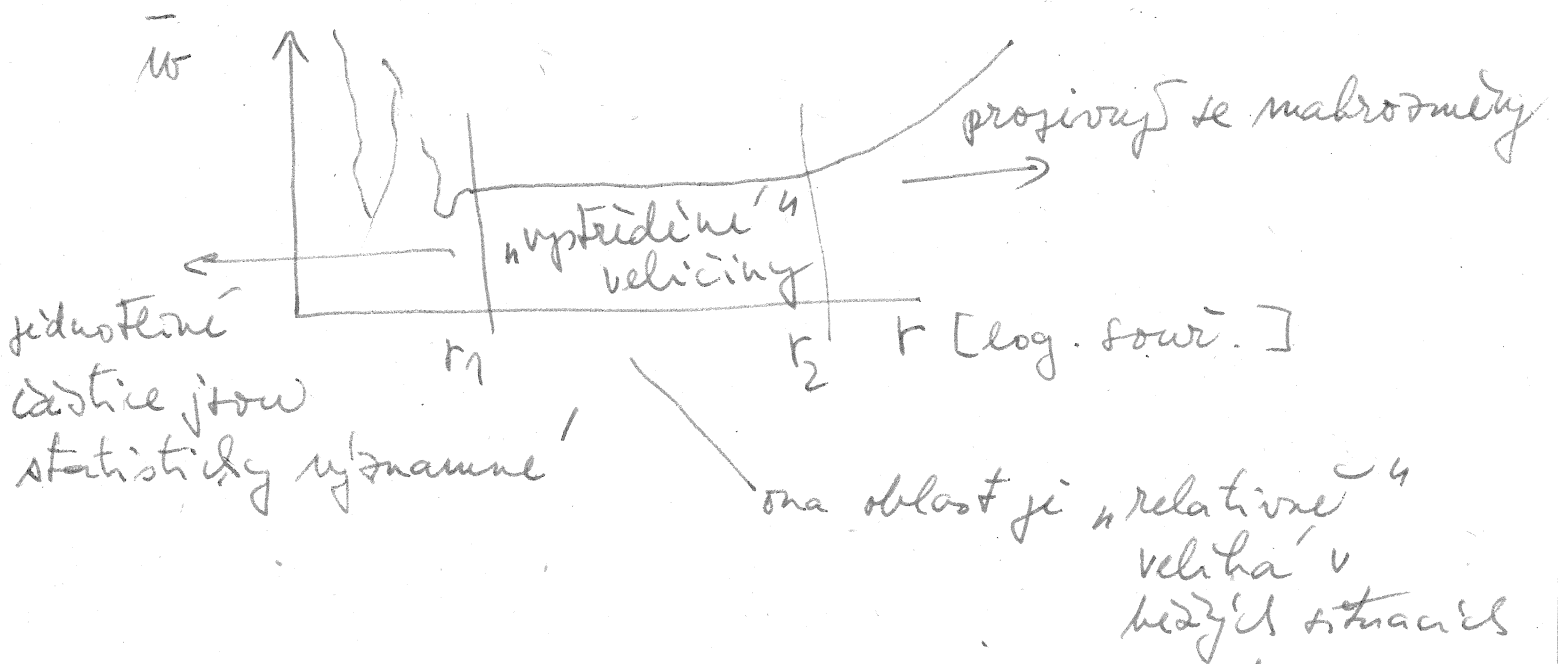 w̄
projevují se makrorozměry
„vystředěné“
veličiny
jednotlivé
částice jsou
statisticky významné
r₁
r₂
r [log. souř.]
ona oblast je „relativně“
velká v
běžných situacích